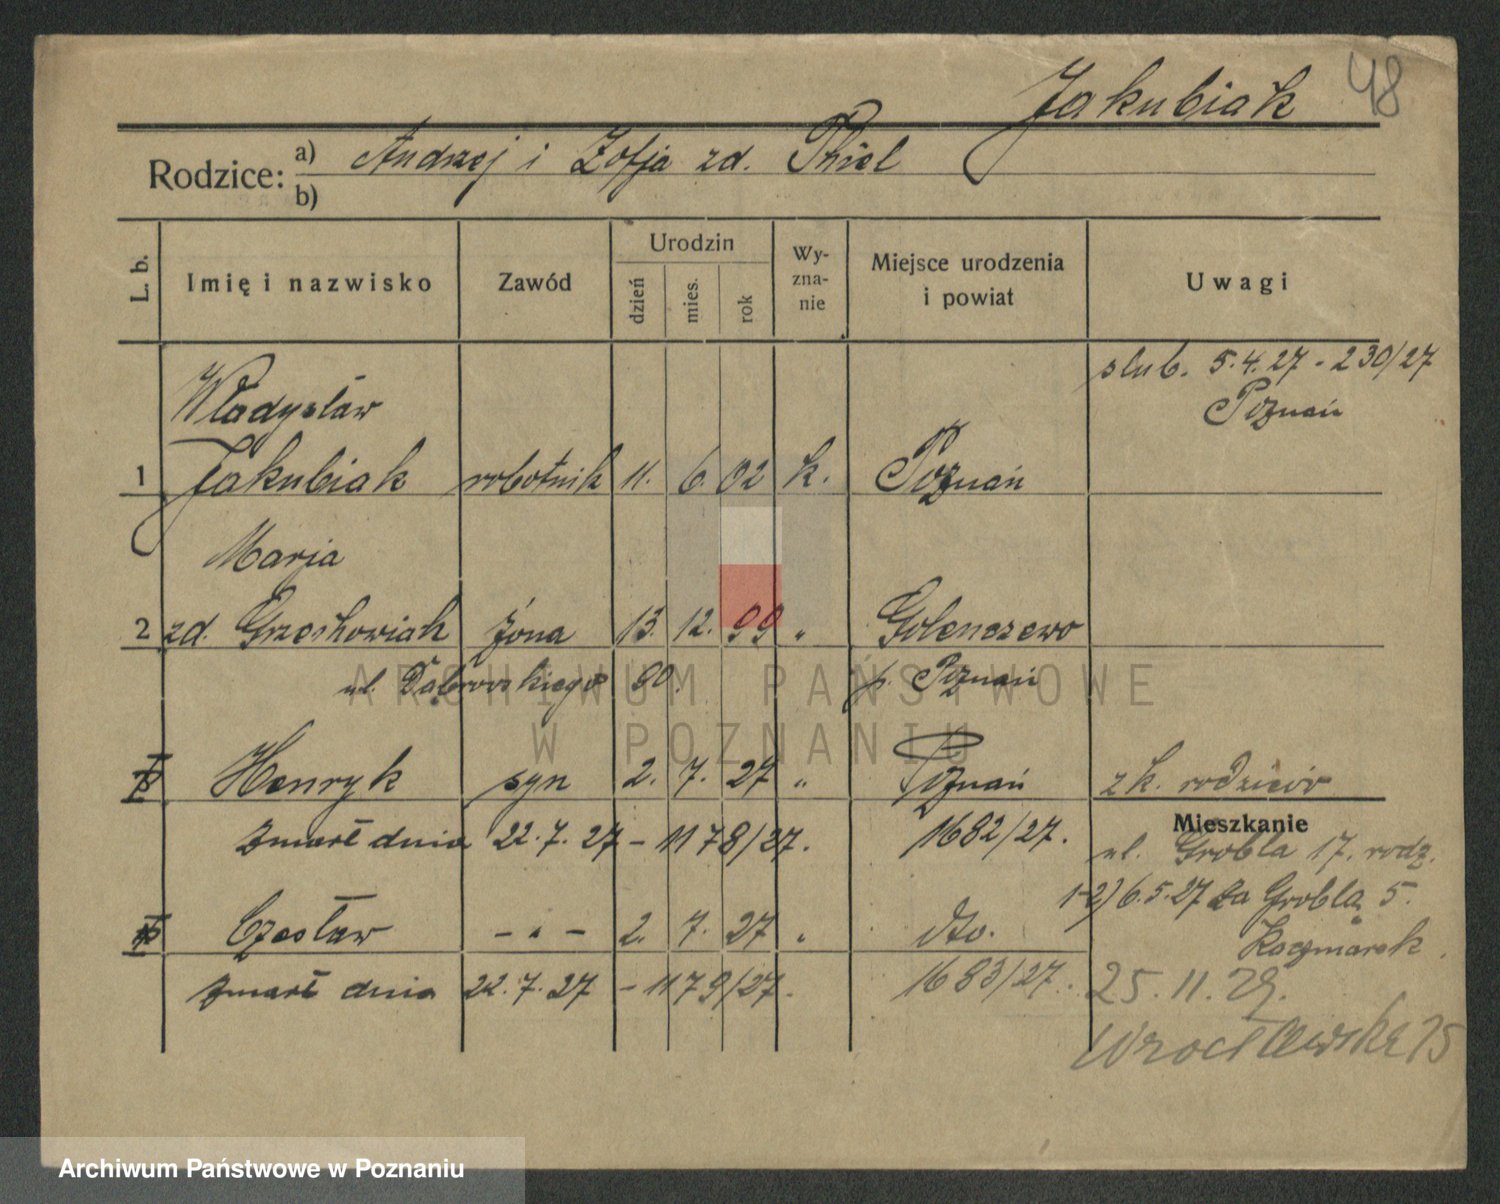 Jakubiak 48
Rodzice: a) Andrzej i Zofja zd. Thiel
b)
L. b. Imię i nazwisko Zawód Urodzin dzień mies. rok Wy-zna-nie Miejsce urodzenia i powiat Uwagi
ślub. 5.4.27 - 230/27
Poznań
Władysław
1 Jakubiak robotnik 11. 6. 02 k. Poznań
Marja
2 zd. Grześkowiak żona 13. 12. 99 " Golenczewo
ul. Dąbrowskiego 80. p. Poznań
Henryk syn 2. 7. 27 " Poznań z k. rodziców
zmarł dnia 22.7.27 - 1178/27. 1682/27.
Mieszkanie
ul. Grobla 17. rodz.
1-2) 6.5.27 za Grobla 5.
Czesław - " - 2. 7. 27 " dto. Kaczmarek.
zmarł dnia 22.7.27 - 1179/27. 1683/27. 25.11.29.
Wrocławska 15
ARCHIWUM PAŃSTWOWE
W POZNANIU
Archiwum Państwowe w Poznaniu